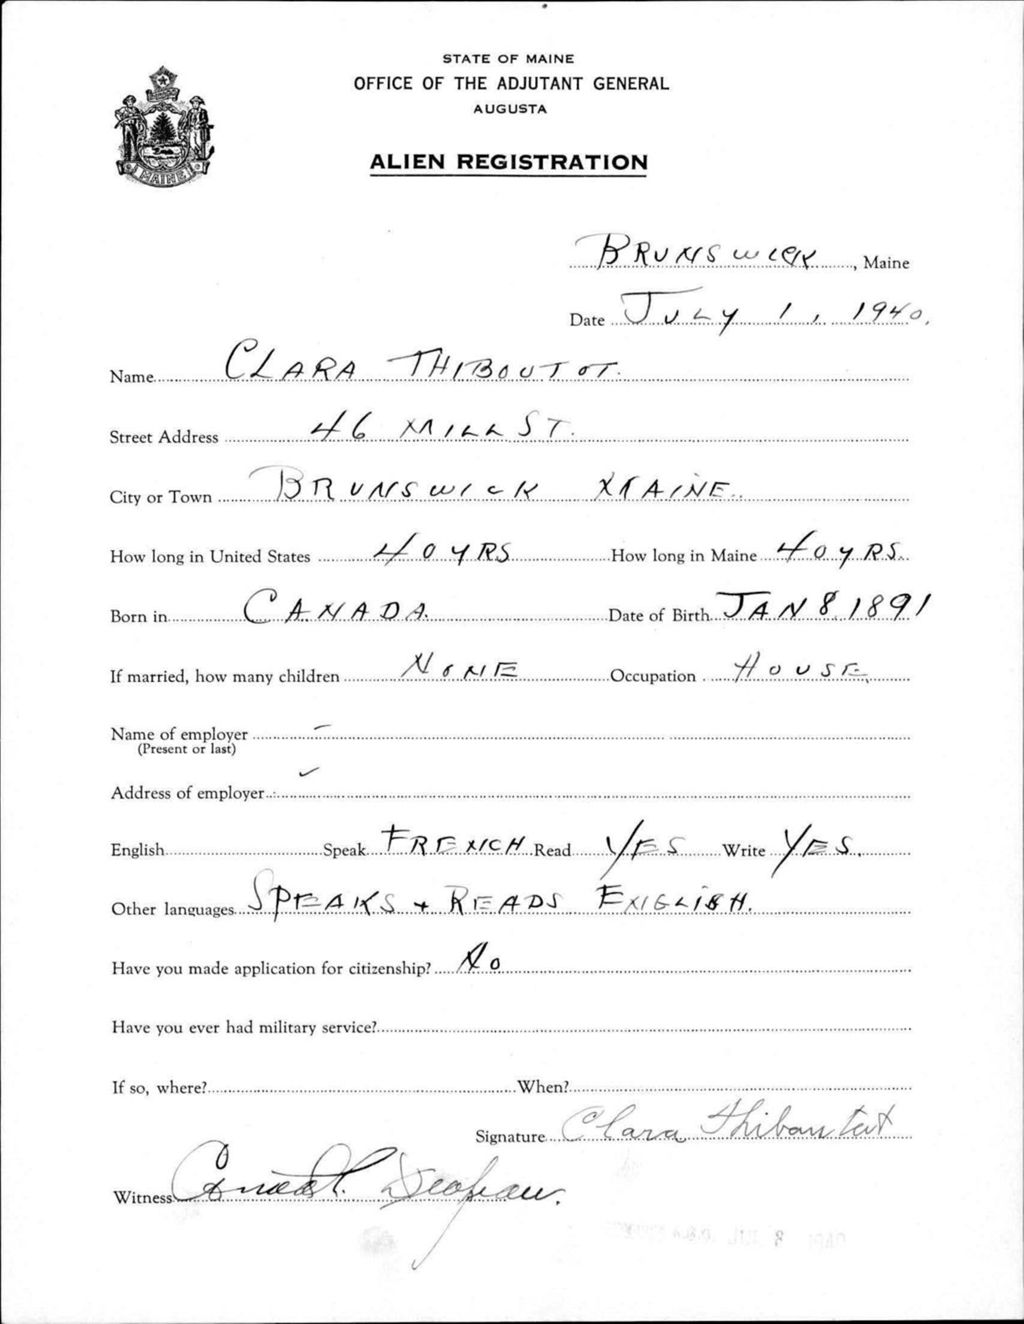 STATE OF MAINE
OFFICE OF THE ADJUTANT GENERAL
AUGUSTA
ALIEN REGISTRATION
MAINE
BRUNSWICK, Maine
Date JULY 1, 1940.
Name CLARA THIBOUTOT.
Street Address 46 MILL ST.
City or Town BRUNSWICK MAINE.
How long in United States 40 YRS How long in Maine 40 YRS.
Born in CANADA. Date of Birth JAN 8, 1891
If married, how many children NONE Occupation HOUSE.
Name of employer -
(Present or last)
Address of employer
English Speak FRENCH Read YES Write YES.
Other languages SPEAKS + READS ENGLISH.
Have you made application for citizenship? No
Have you ever had military service?
If so, where? When?
Signature Clara Thiboutot
Witness